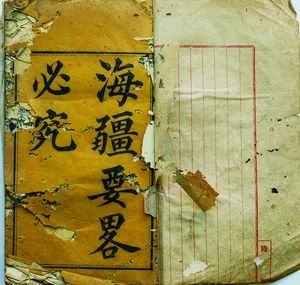 海疆要畧
必究